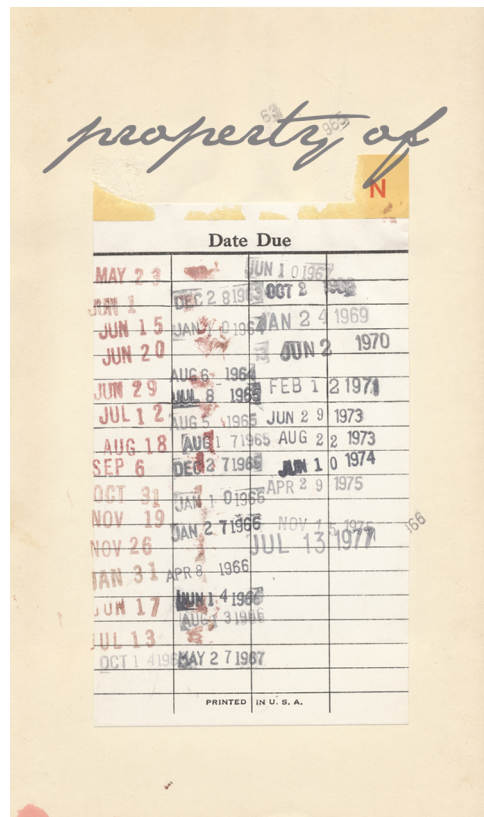 property of
N
Date Due
MAY 23
JUN 1
JUN 15
JUN 20
JUN 29
JUL 12
AUG 18
SEP 6
OCT 31
NOV 19
NOV 26
JAN 31
JUN 17
JUL 13
OCT 14 196
DEC 28 1963
JAN 10 1964
AUG 6 1964
JUL 8 1965
AUG 5 1965
AUG 17 1965
DEC 27 1965
JAN 10 1966
JAN 27 1966
APR 8 1966
JUN 14 1966
AUG 3 1966
MAY 27 1967
JUN 10 1967
OCT 2
JAN 24 1969
JUN 2 1970
FEB 12 1971
JUN 29 1973
AUG 22 1973
JUN 10 1974
APR 29 1975
NOV 15 1976
JUL 13 1977
PRINTED IN U. S. A.